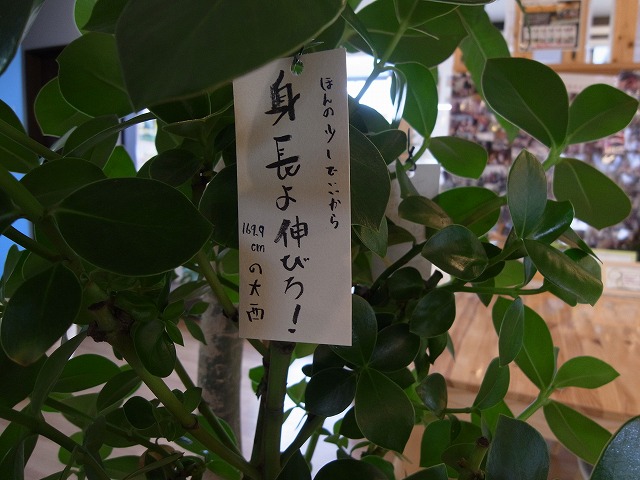 ほんの少しでいいから
身長よ伸びろ!
169.9
cm
の大西